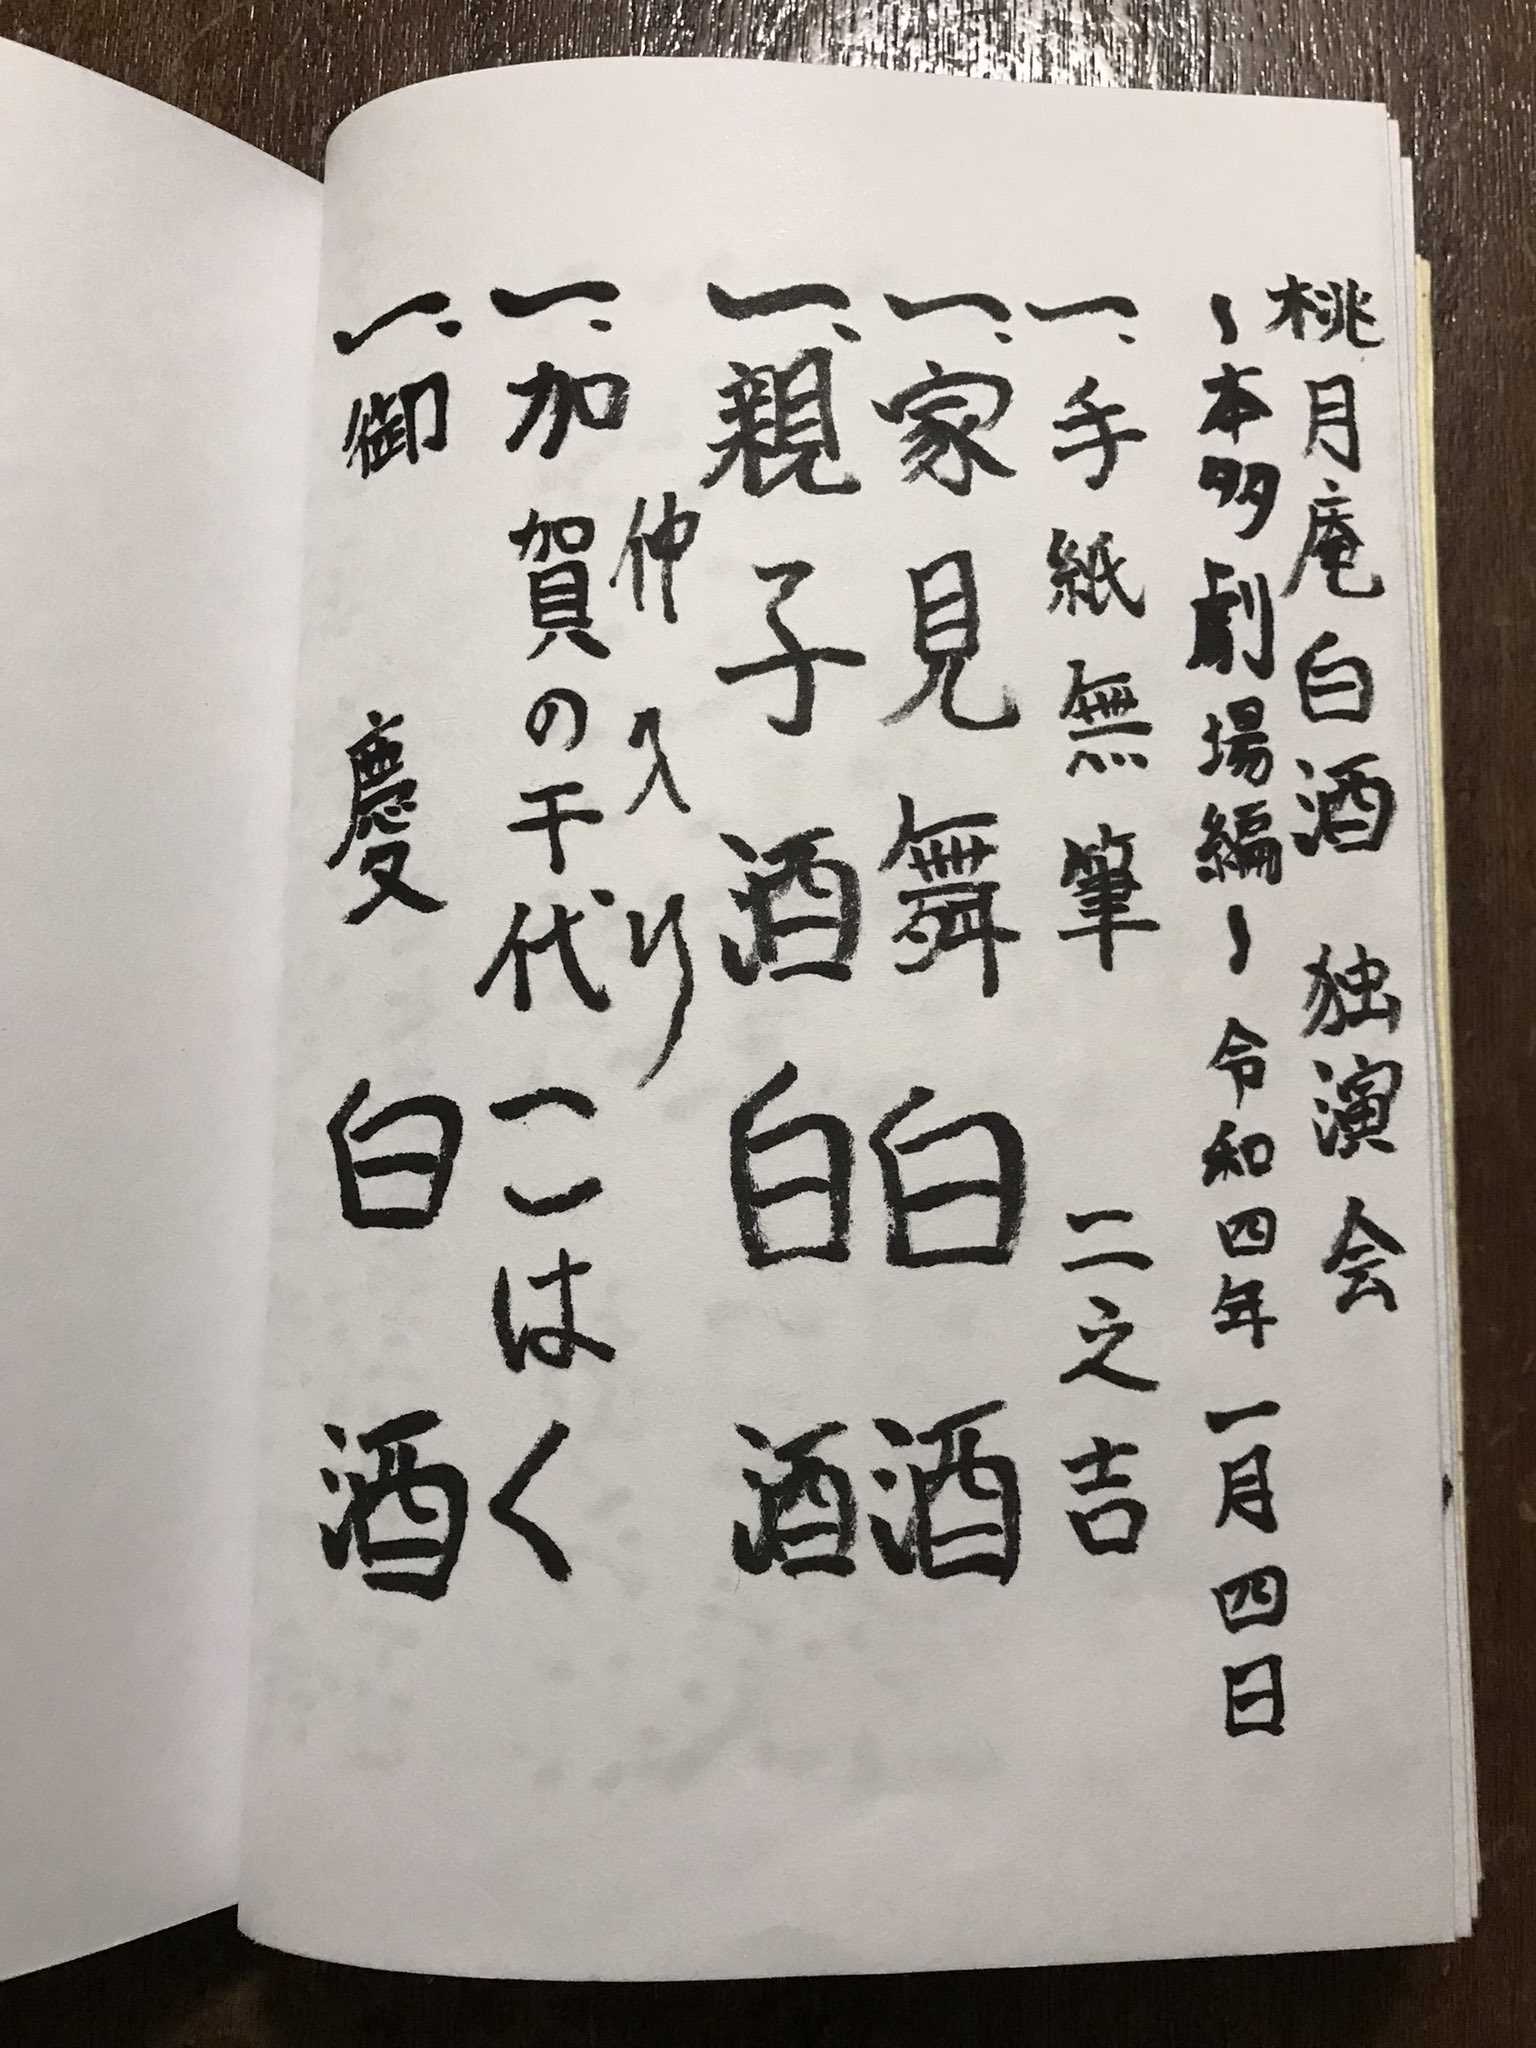 桃月庵白酒 独演会
~本多劇場編~ 令和四年一月四日
一、手紙無筆 二之吉
一、家見舞 白酒
一、親子酒 白酒
仲入り
一、加賀の千代 こはく
一、御慶 白酒